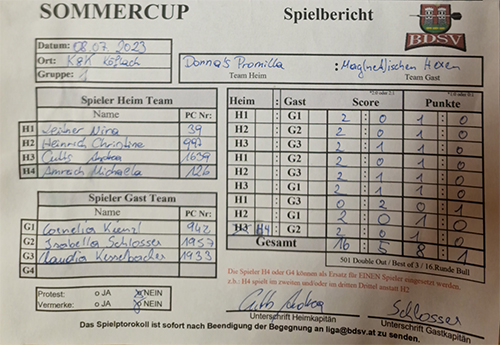 SOMMERCUP Spielbericht
BDSV
Datum: 08.07.2023
Ort: K&K Köflach
Gruppe: 1
Donna's Promilla : Mag(net)ischen Hexen
Team Heim Team Gast
Spieler Heim Team
Name PC Nr:
H1 Leitner Nina 39
H2 Heinrich Christine 997
H3 Cults Andrea 1659
H4 Michaela 126
Spieler Gast Team
Name PC Nr:
G1 Cornelia Kienzl 942
G2 Isabella Schlosser 1957
G3 Claudia 1933
G4
Heim : Gast Score Punkte
H1 : G1 2 : 0 1 : 0
H2 : G2 2 : 0 1 : 0
H3 : G3 2 : 1 1 : 0
H1 : G2 2 : 1 1 : 0
H2 : G3 2 : 1 1 : 0
H3 : G1 2 : 1 1 : 0
H1 : G3 0 : 2 0 : 1
H2 : G1 2 : 0 1 : 0
H3 H4 : G2 2 : 0 1 : 0
Gesamt 16 : 5 8 : 1
501 Double Out / Best of 3 / 16 Runde Bull
Die Spieler H4 oder G4 können als Ersatz für EINEN Spieler eingesetzt werden.
z.b.: H4 spielt im zweiten und/oder im dritten Drittel anstatt H2
Protest: o JA NEIN
Vermerke: o JA NEIN
Cults Andrea Schlosser
Unterschrift Heimkapitän Unterschrift Gastkapitän
Das Spielptorokoll ist sofort nach Beendigung der Begegnung an liga@bdsv.at zu senden.